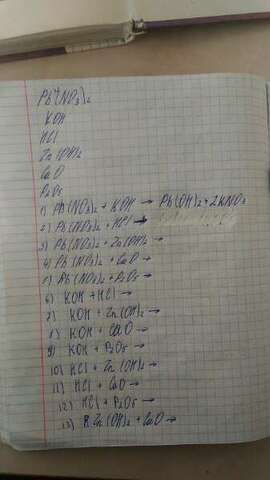 Pb(NO₃)₂
KOH
HCl
Zn(OH)₂
CaO
P₂O₅
1) Pb(NO₃)₂ + KOH → Pb(OH)₂ + 2KNO₃
2) Pb(NO₃)₂ + HCl →
3) Pb(NO₃)₂ + Zn(OH)₂ →
4) Pb(NO₃)₂ + CaO →
5) Pb(NO₃)₂ + P₂O₅ →
6) KOH + HCl →
7) KOH + Zn(OH)₂ →
8) KOH + CaO →
9) KOH + P₂O₅ →
10) HCl + Zn(OH)₂ →
11) HCl + CaO →
12) HCl + P₂O₅ →
13) Zn(OH)₂ + CaO →